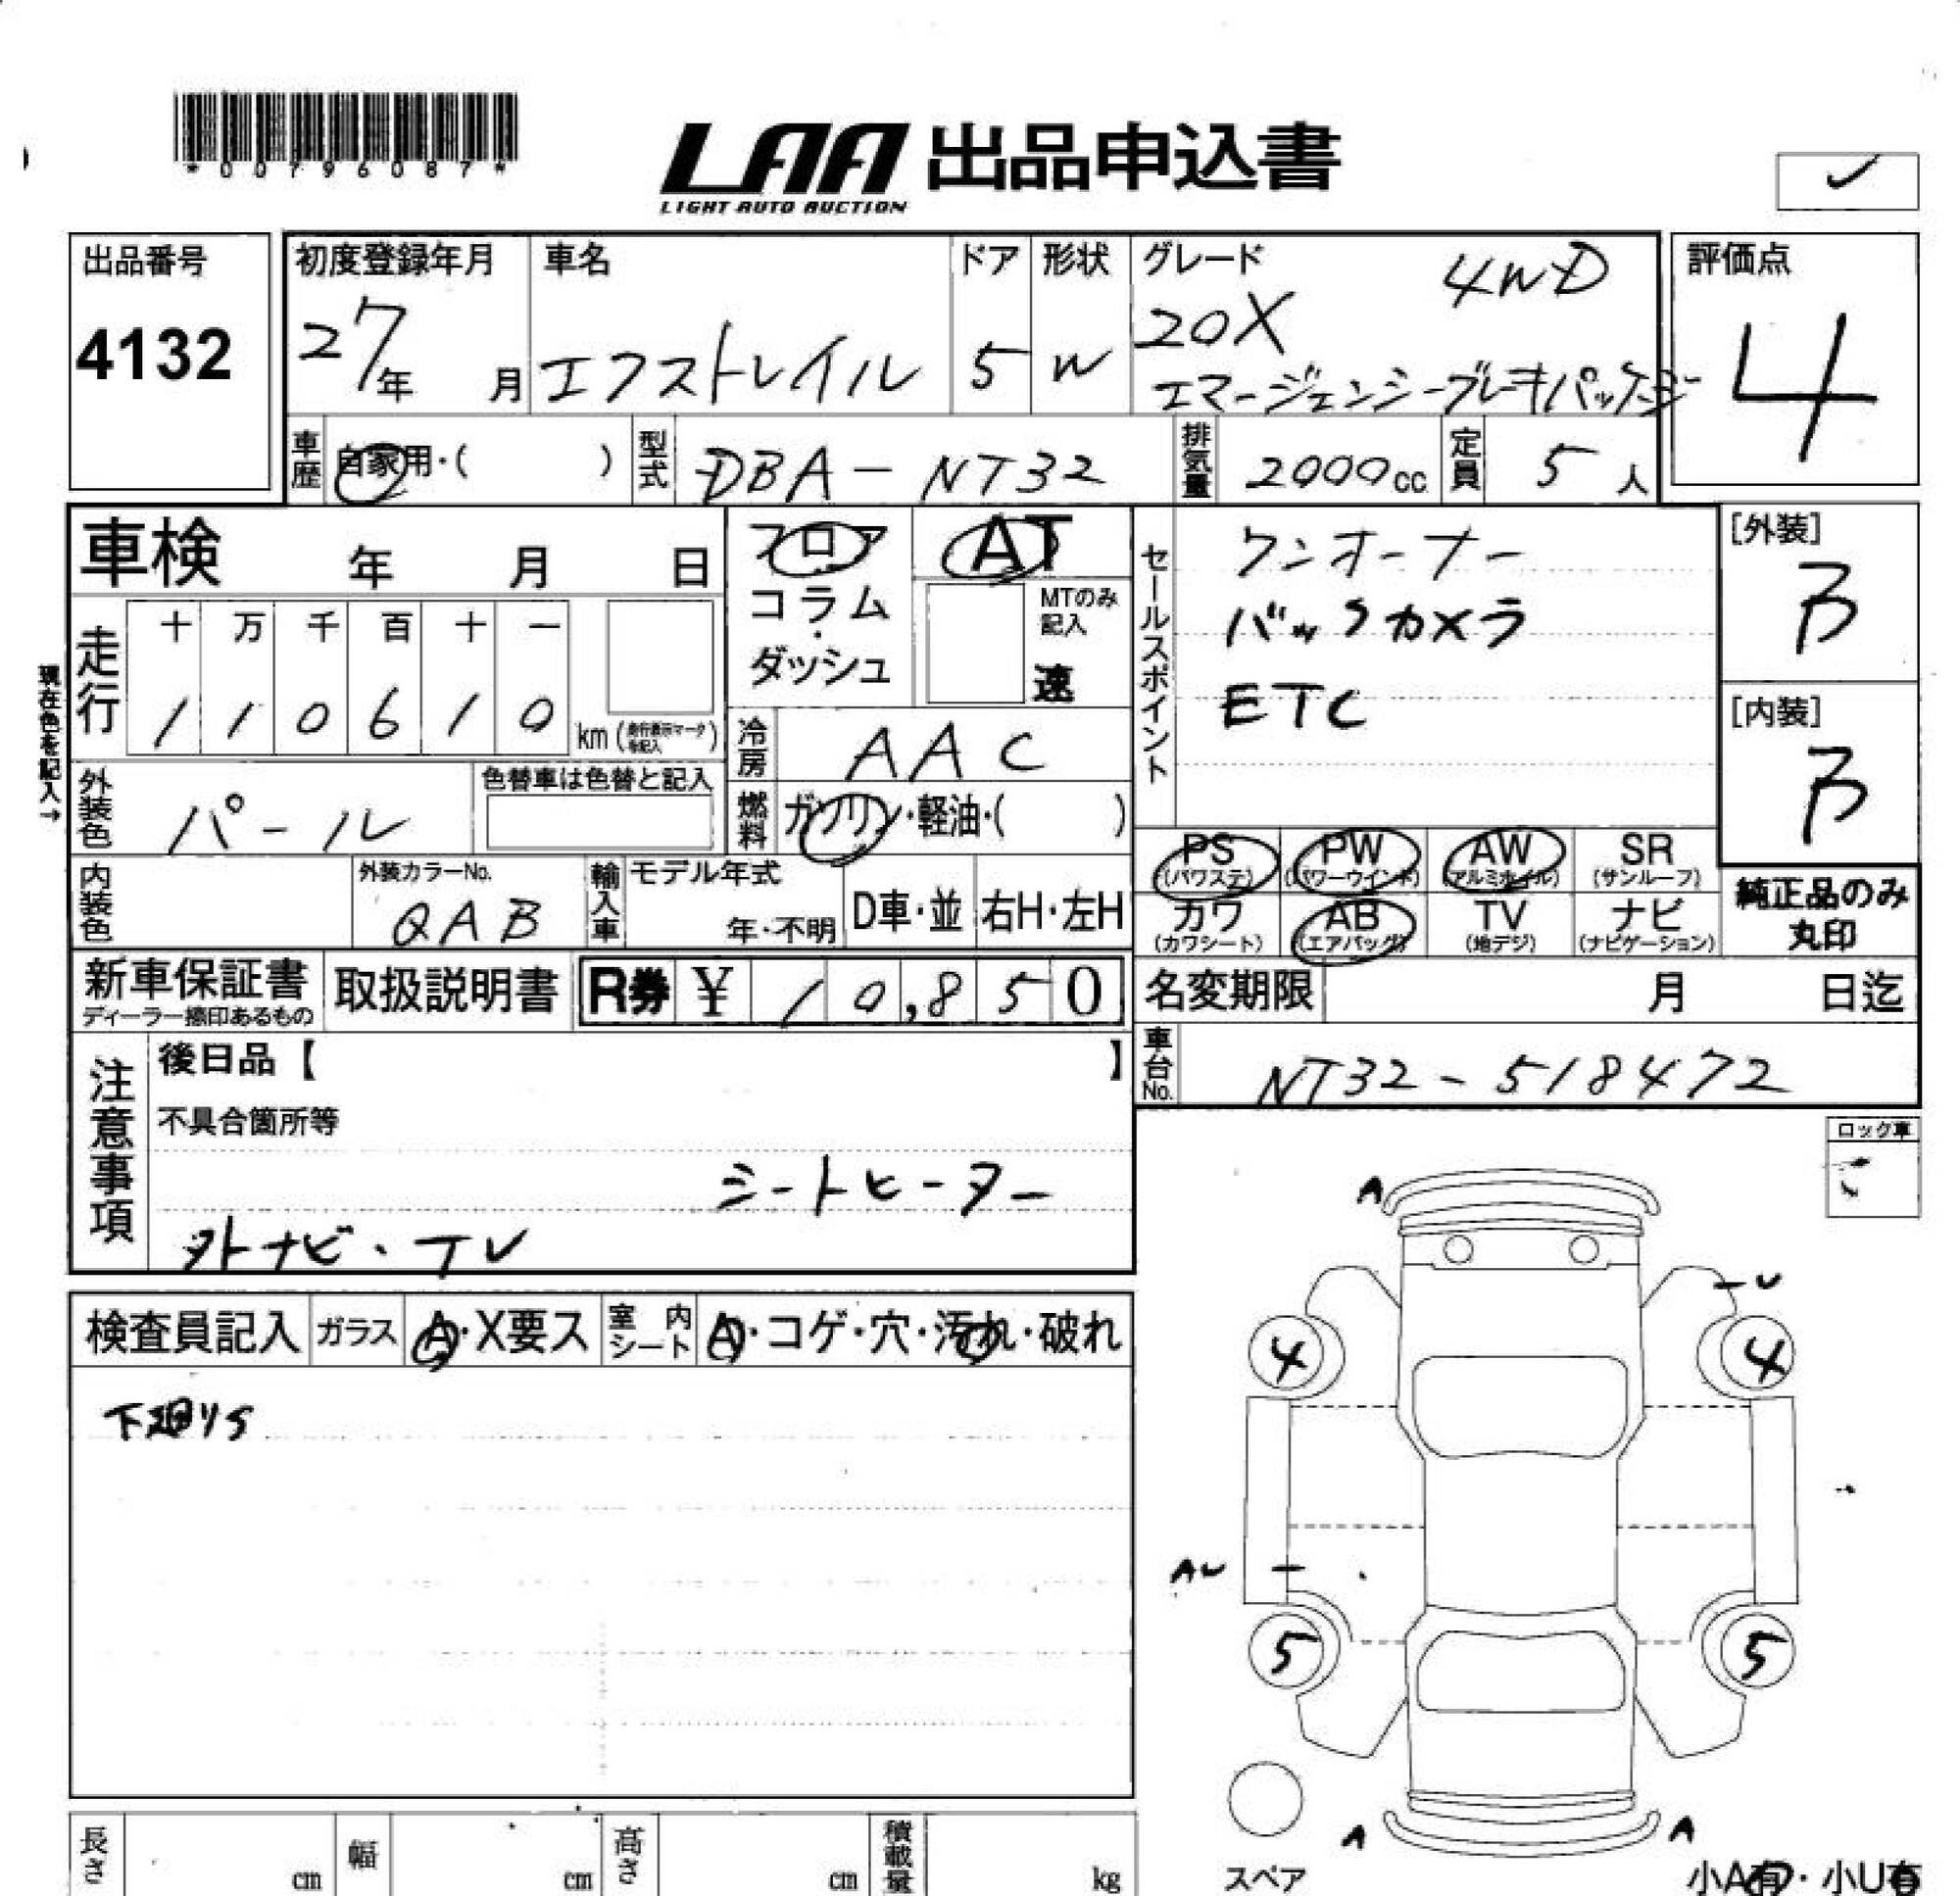 *00796087*
LAA 出品申込書
LIGHT AUTO AUCTION
✓
出品番号
4132
初度登録年月
27年 月
車名
エクストレイル
ドア
5
形状
W
グレード 4WD
20X
エマージェンシーブレーキパッケージ
評価点
4
車歴 自家用・( )
型式 DBA-NT32
排気量 2000cc
定員 5人
車検 年 月 日
走行
十 万 千 百 十 一
1 1 0 6 1 0 km (走行表示マークを記入)
現在色を記入→
外装色 パール
色替車は色替と記入
内装色
外装カラーNo.
QAB
フロア・コラム・ダッシュ
AT
MTのみ記入
速
冷房 AAC
燃料 ガソリン・軽油・( )
輸入車 モデル年式
年・不明
D車・並
右H・左H
セールスポイント
ワンオーナー
バックカメラ
ETC
[外装]
B
[内装]
B
PS (パワステ)
PW (パワーウインド)
AW (アルミホイル)
SR (サンルーフ)
カワ (カワシート)
AB (エアバッグ)
TV (地デジ)
ナビ (ナビゲーション)
純正品のみ
丸印
新車保証書
ディーラー捺印あるもの
取扱説明書
R券 ¥ 10,850
名変期限 月 日迄
車台No. NT32-518472
注意事項
後日品【 】
不具合箇所等
シートヒーター
外ナビ・TV
ロック車
検査員記入
ガラス A・X要ス
室内シート A・コゲ・穴・汚れ・破れ
下廻りS
A
U
4
4
AU
5
5
A
A
スペア
小A有・小U有
長さ cm
幅 cm
高さ cm
積載量 kg